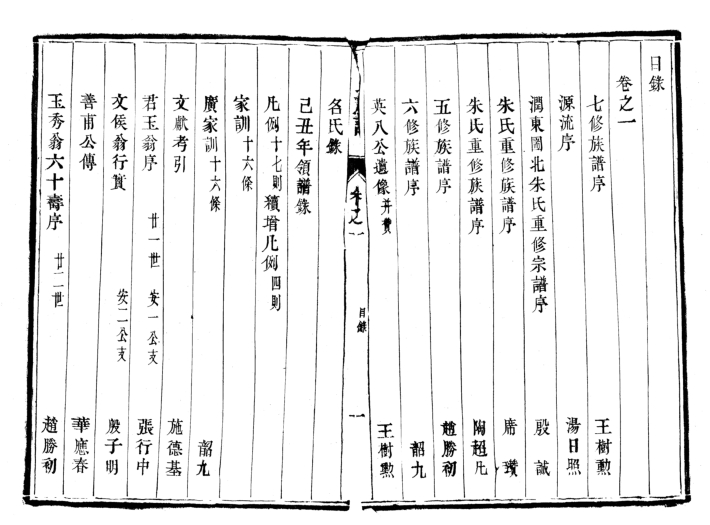 目錄
卷之一
七修族譜序 王樹勲
源流序 湯日照
潤東圌北朱氏重修宗譜序 殷誠
朱氏重修族譜序 席瓚
朱氏重修族譜序 陶超凡
五修族譜序 趙勝初
六修族譜序 韶九
英八公遺像并贊 王樹勲
卷之一 目錄 一
名氏錄
己丑年領譜錄
凡例十七則續增凡例四則
家訓十六條
廣家訓十六條 韶九
文獻考引 施德基
君玉翁序 廿一世 安一公支 張行中
文侯翁行實 安二公支 殷子明
善甫公傳 華應春
玉秀翁六十壽序 廿二世 趙勝初